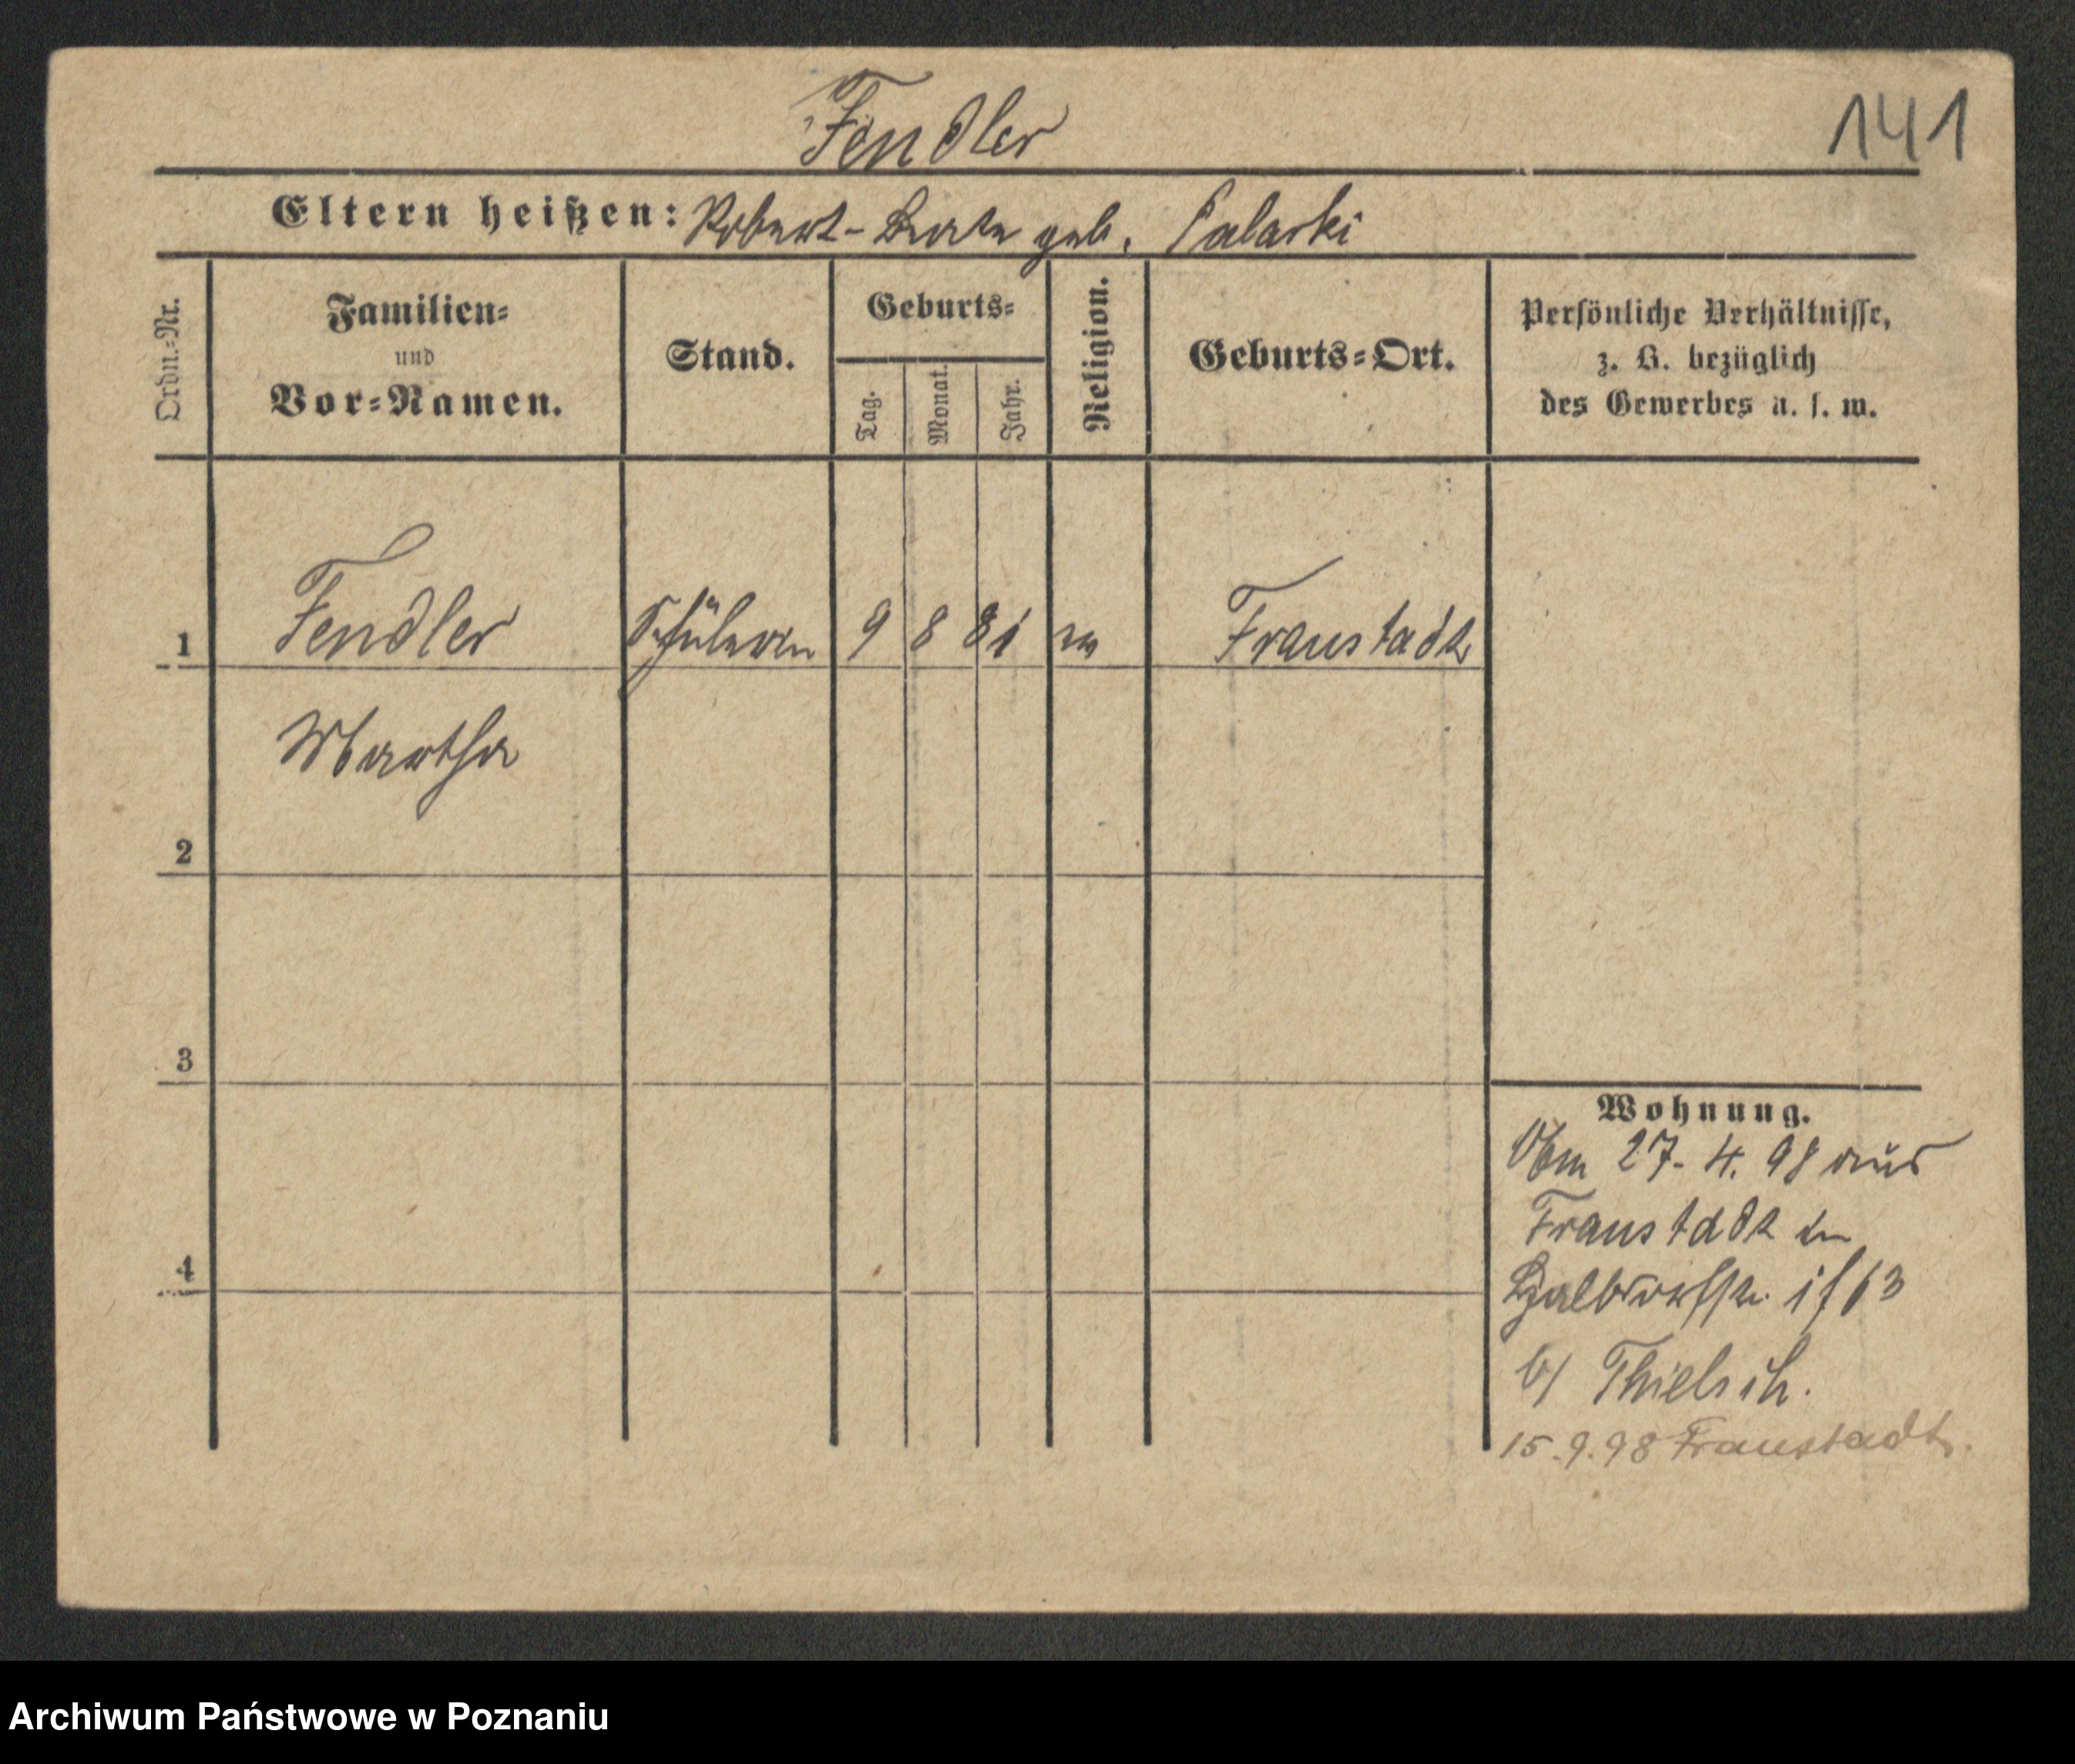 Fendler
141
Eltern heißen: Robert - Beate geb. Salaski
Ordn.-Nr.
Familien- und Vor-Namen.
Stand.
Geburts-
Tag.
Monat.
Jahr.
Religion.
Geburts-Ort.
Persönliche Verhältnisse,
z. B. bezüglich
des Gewerbes u. s. w.
1 Fendler Schülerin 9 8 81 ev Fraustadt
Martha
2
3
4
Wohnung.
Am 27. 4. 98 aus
Fraustadt
b/ Thielsch.
15.9.98 Fraustadt.
Archiwum Państwowe w Poznaniu